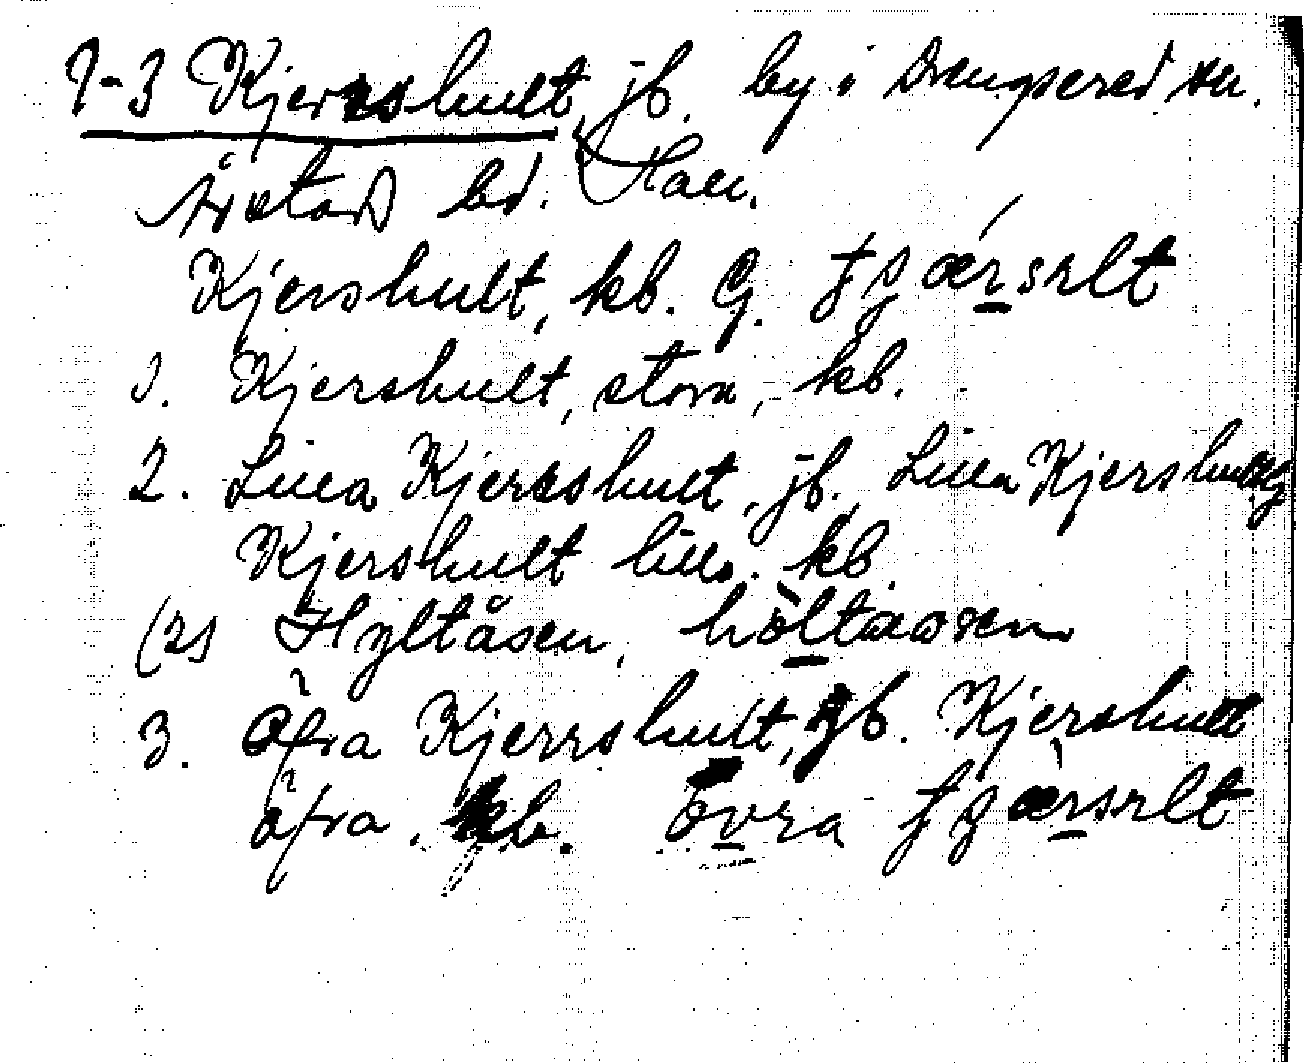 1-3 Kjersshult, jb. by i Drengsered sn.
Årstad hd. Hall.
Kjershult, kb. G. fgærsrlt
1. Kjershult, stora, kb.
2. Lilla Kjersshult, jb., Lilla Kjershult
Kjershult lilla. kb.
(2) Hyltåsen, høltaasen
3. Öfra Kjerrshult, jb. Kjershult
öfra. kb. övra fgærsrlt